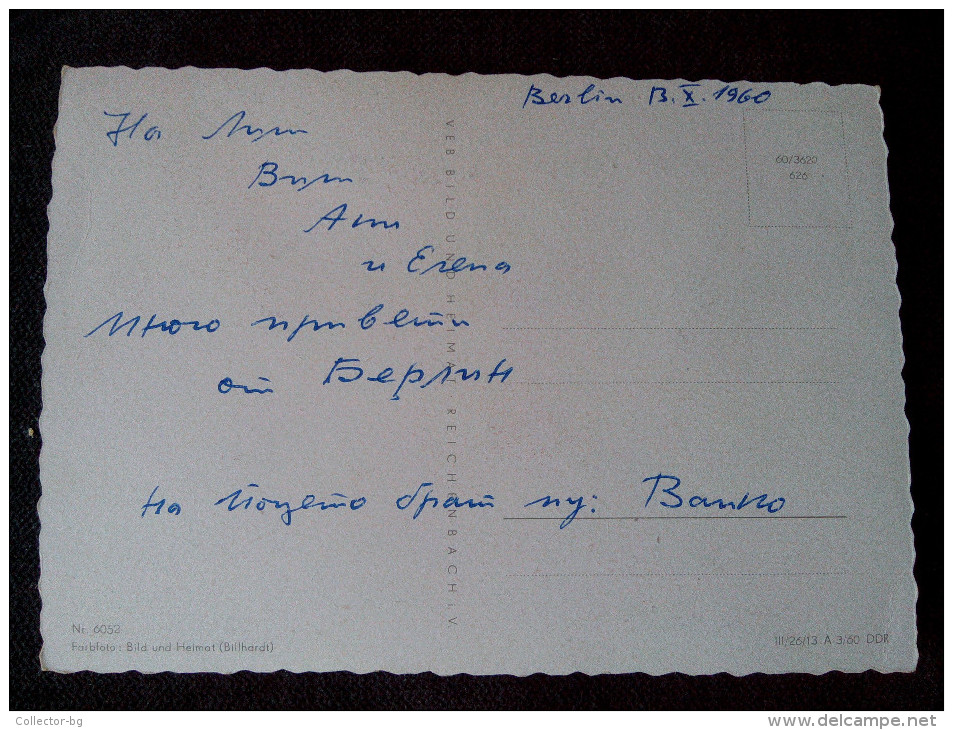 Berlin 13.X.1960
На
и Елена
Много привети
от Берлин
на брат му: Ванко
VEB BILD UND HEIMAT REICHENBACH i.V.
60/3620
626
Nr. 6052
Farbfoto: Bild und Heimat (Billhardt)
III/26/13 A 3/60 DDR
Collector-bg
delcampe.net